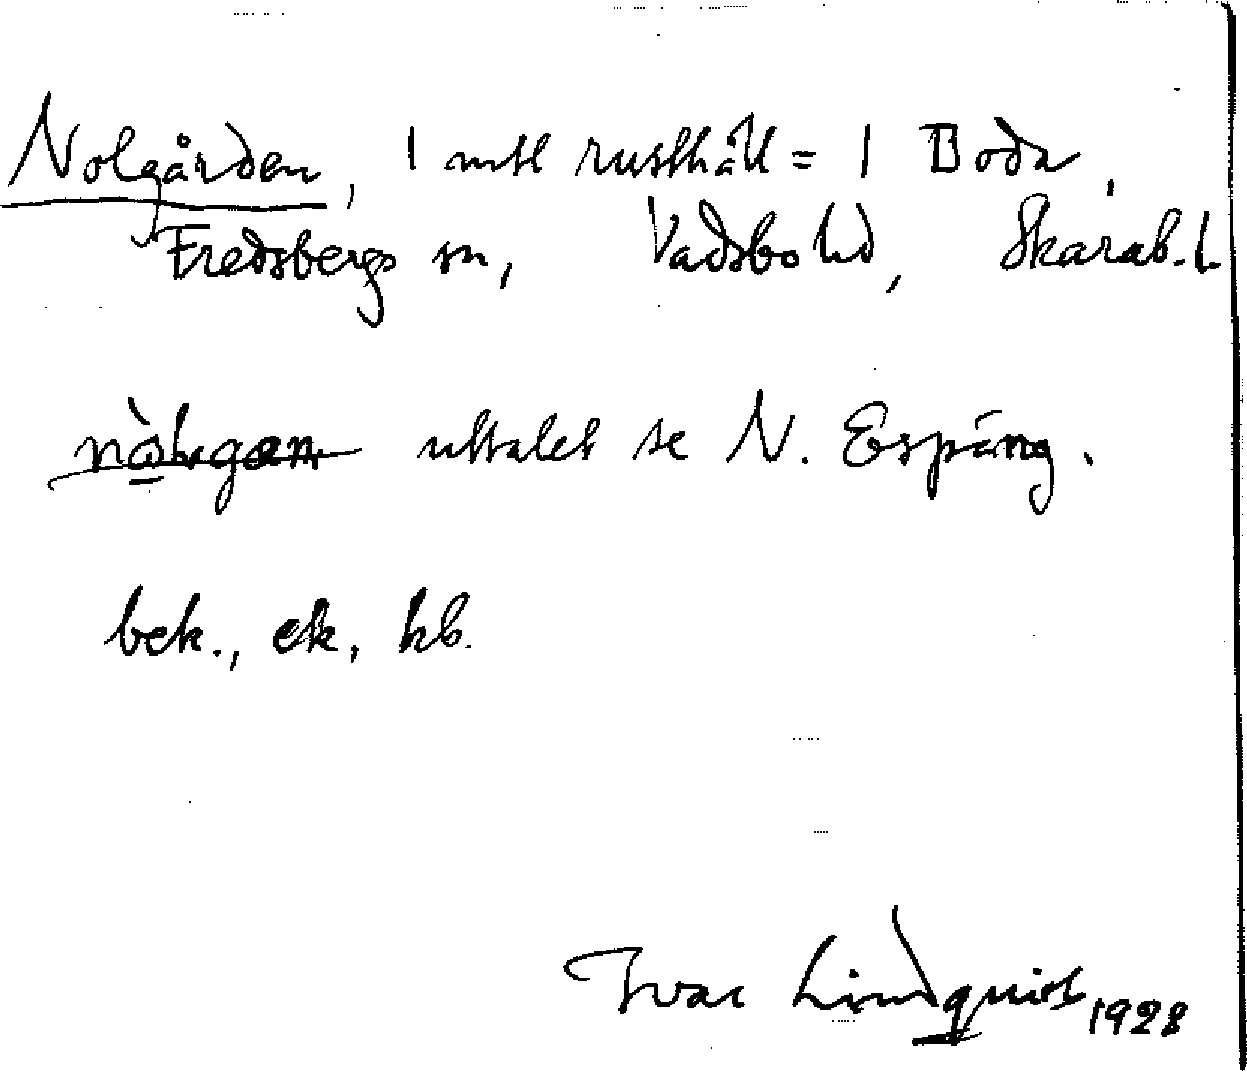 Nolgården, 1 mtl rusthåll = 1 Boda,
Fredsbergs sn, Vadsbo hd, Skarab. l.
uttalet se N. Espång.
bek., ek, kb.
Ivar Lindquist 1928